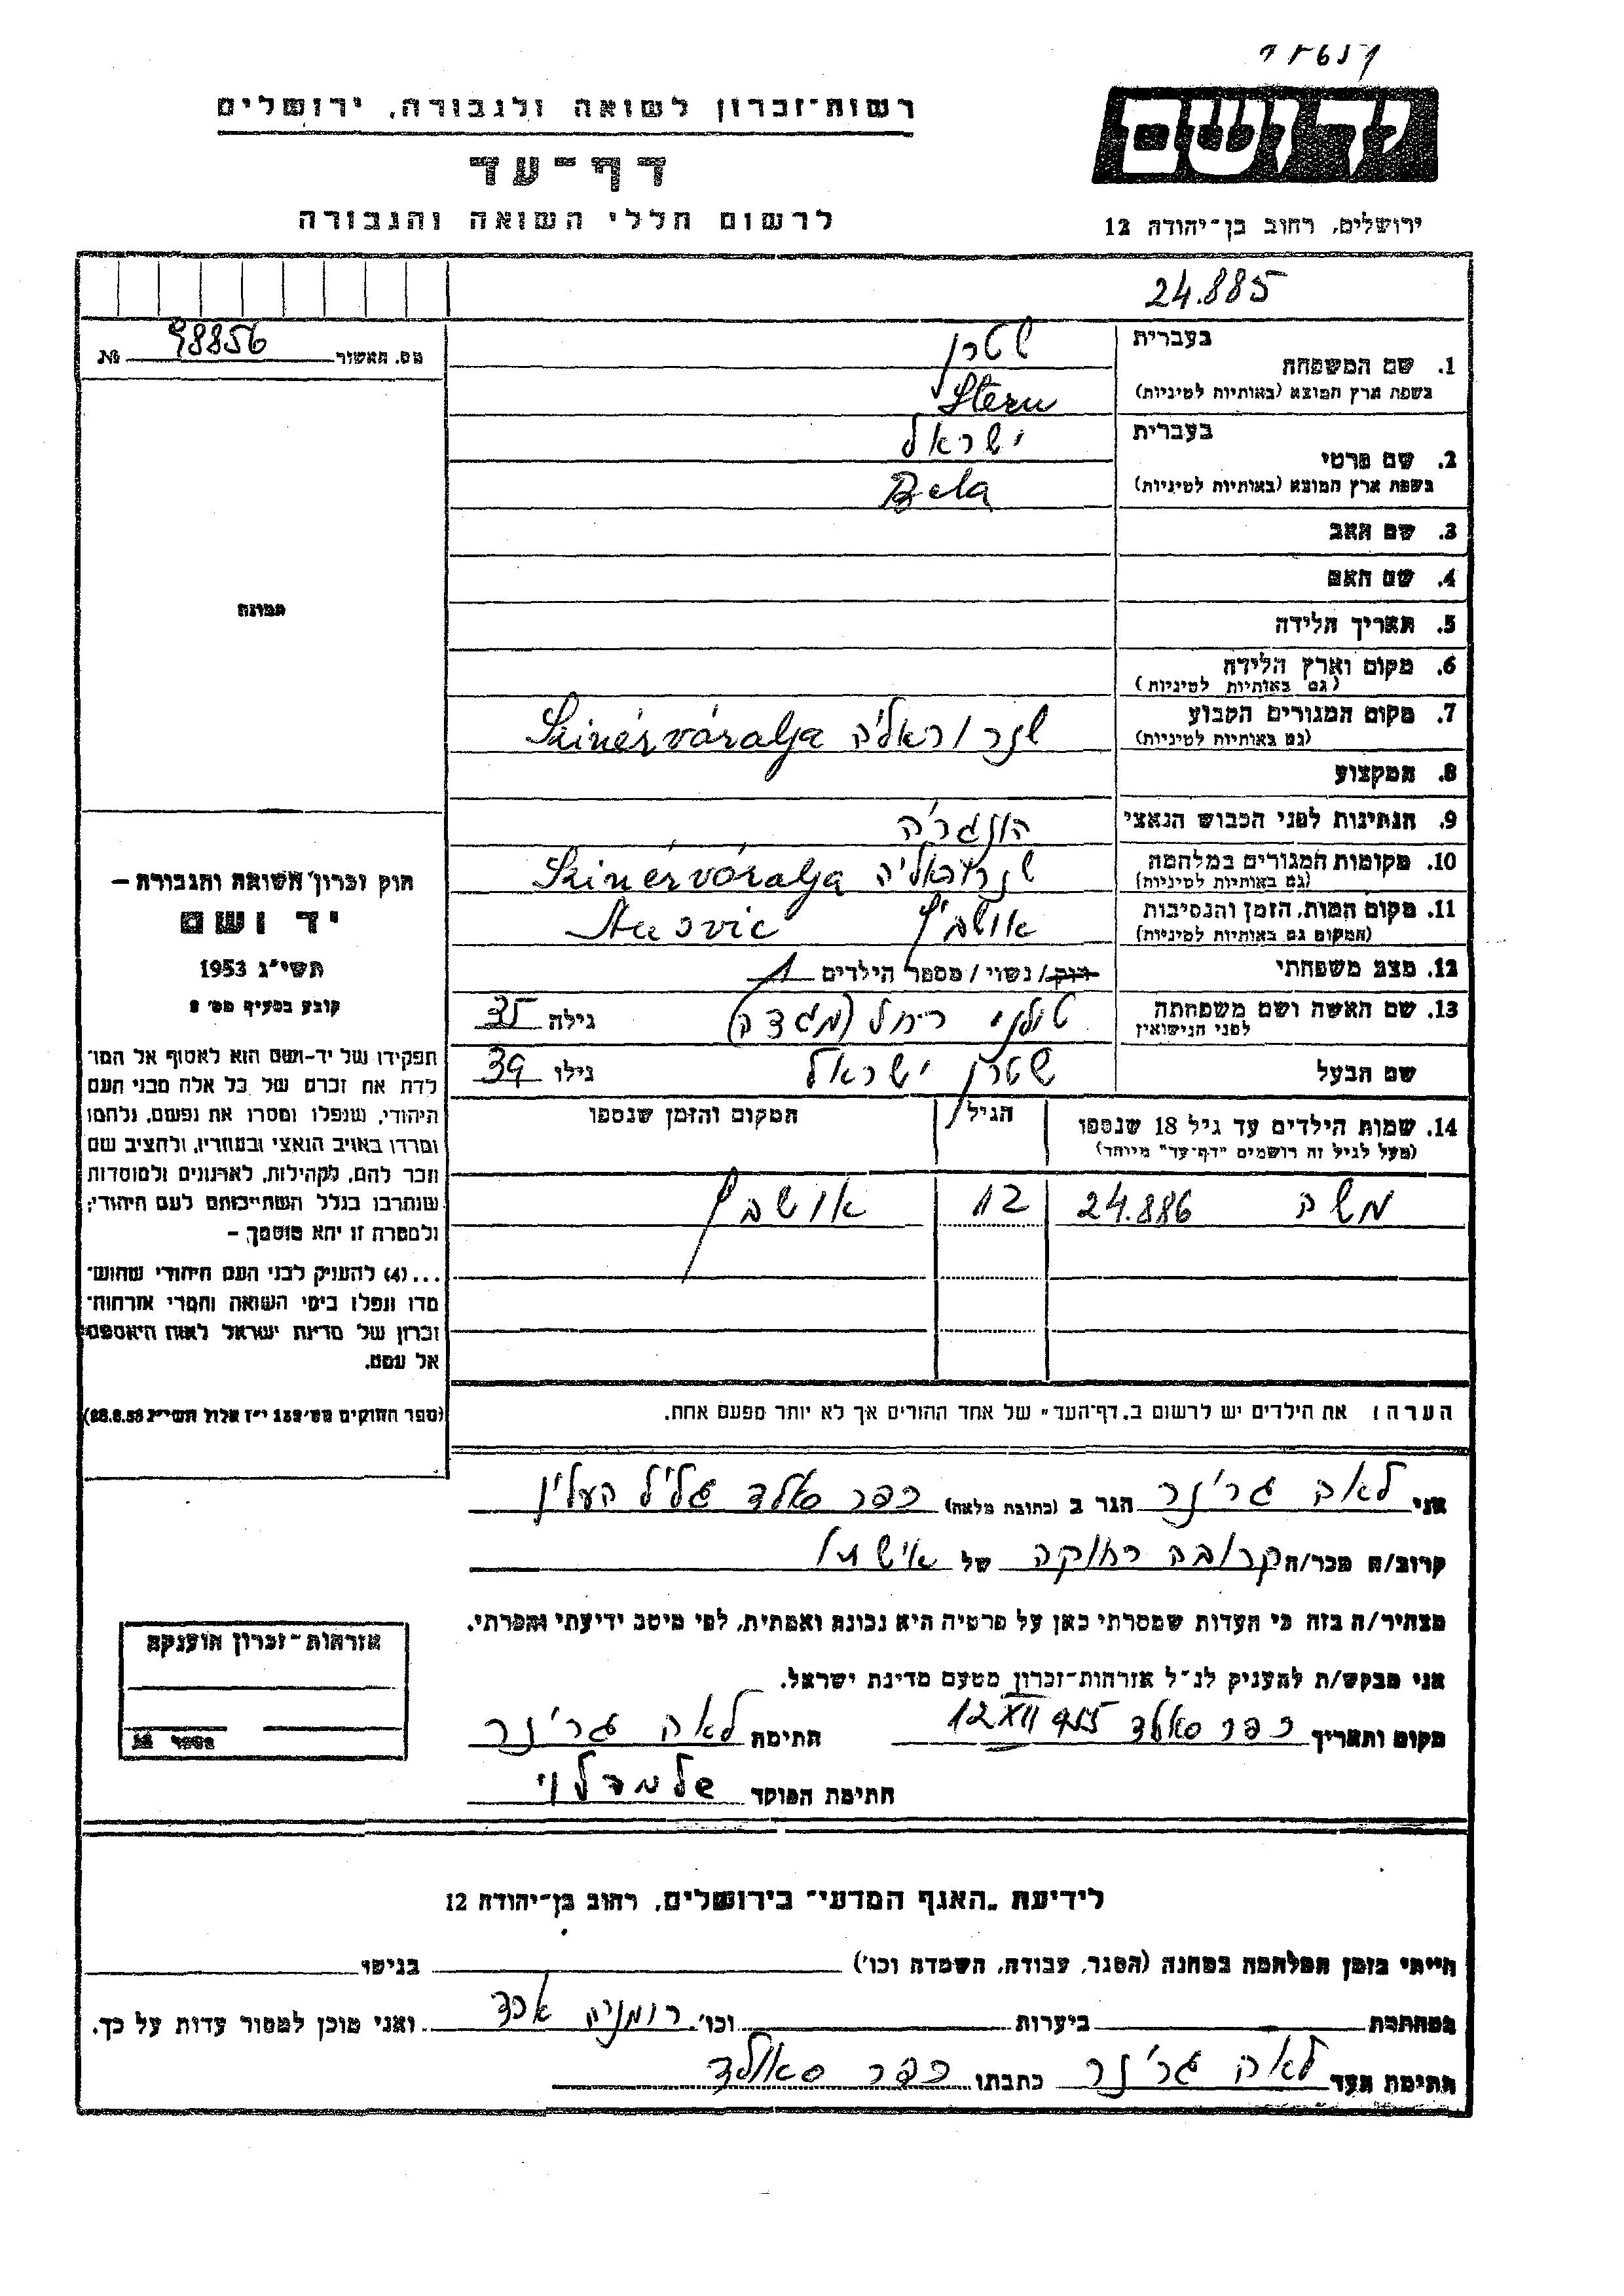 רשות־זכרון לשואה ולגבורה, ירושלים
דף־עד
לרשום חללי השואה והגבורה
יד ושם
ירושלים, רחוב בן־יהודה 12
24.885
מס. האשור 98856 №
1. שם המשפחה
בעברית שטרן
בשפת ארץ המוצא (באותיות לטיניות) Stern
2. שם פרטי
בעברית ישראל
בשפת ארץ המוצא (באותיות לטיניות) Bela
3. שם האב
4. שם האם
5. תאריך הלידה
6. מקום וארץ הלידה
(גם באותיות לטיניות)
7. מקום המגורים הקבוע
(גם באותיות לטיניות) Szinérváralja
8. המקצוע
9. הנתינות לפני הכבוש הנאצי הונגריה
10. מקומות המגורים במלחמה
(גם באותיות לטיניות) Szinérváralja
11. מקום המות, הזמן והנסיבות אושביץ
(המקום גם באותיות לטיניות)
12. מצב משפחתי רוק / נשוי / מספר הילדים 1
13. שם האשה ושם משפחתה רחל (מגדה) גילה 35
לפני הנישואין
שם הבעל שטרן ישראל גילו 39
14. שמות הילדים עד גיל 18 שנספו הגיל המקום והזמן שנספו
(מעל לגיל זה רושמים "דף־עד" מיוחד)
משה 24.886 12 אושביץ
תמונה
חוק זכרון השואה והגבורה –
יד ושם
תשי"ג 1953
קובע בסעיף מס' 2
תפקידו של יד-ושם הוא לאסוף אל המו־
לדת את זכרם של כל אלה מבני העם
היהודי, שנפלו ומסרו את נפשם, נלחמו
ומרדו באויב הנאצי ובעוזריו, ולהציב שם
וזכר להם, לקהילות, לארגונים ולמוסדות
שנחרבו בגלל השתייכותם לעם היהודי;
ולמטרת זו יהא מוסמך, –
...(4) להעניק לבני העם היהודי שהוש־
מדו ונפלו בימי השואה והמרי אזרחות־
זכרון של מדינת ישראל לאות היאספם
אל עמם.
(ספר החוקים מס' 132 י"ז אלול תשי"ג 28.8.53)
הערה: את הילדים יש לרשום ב"דף־העד" של אחד ההורים אך לא יותר מפעם אחת.
אני לאה גרינר הגר ב (כתובת מלאה) כפר סאלד גליל העליון
קרוב/ה מכר/ה קרובה רחוקה של
מצהיר/ה בזה כי העדות שמסרתי כאן על פרטיה היא נכונה ואמתית, לפי מיטב ידיעתי והכרתי.
אני מבקש/ת להעניק לנ"ל אזרחות־זכרון מטעם מדינת ישראל.
מקום ותאריך כפר סאלד 12 XII 955 חתימה לאה גרינר
חתימת הפוקד
אזרחות־זכרון הוענקה
מספר №
לידיעת "האגף המדעי" בירושלים, רחוב בן־יהודה 12
הייתי בזמן המלחמה במחנה (הסגר, עבודה, השמדה וכו') בגיטו
במחתרת ביערות וכו' רומניה ואני מוכן למסור עדות על כך.
חתימת העד לאה גרינר כתבתו כפר סאולד